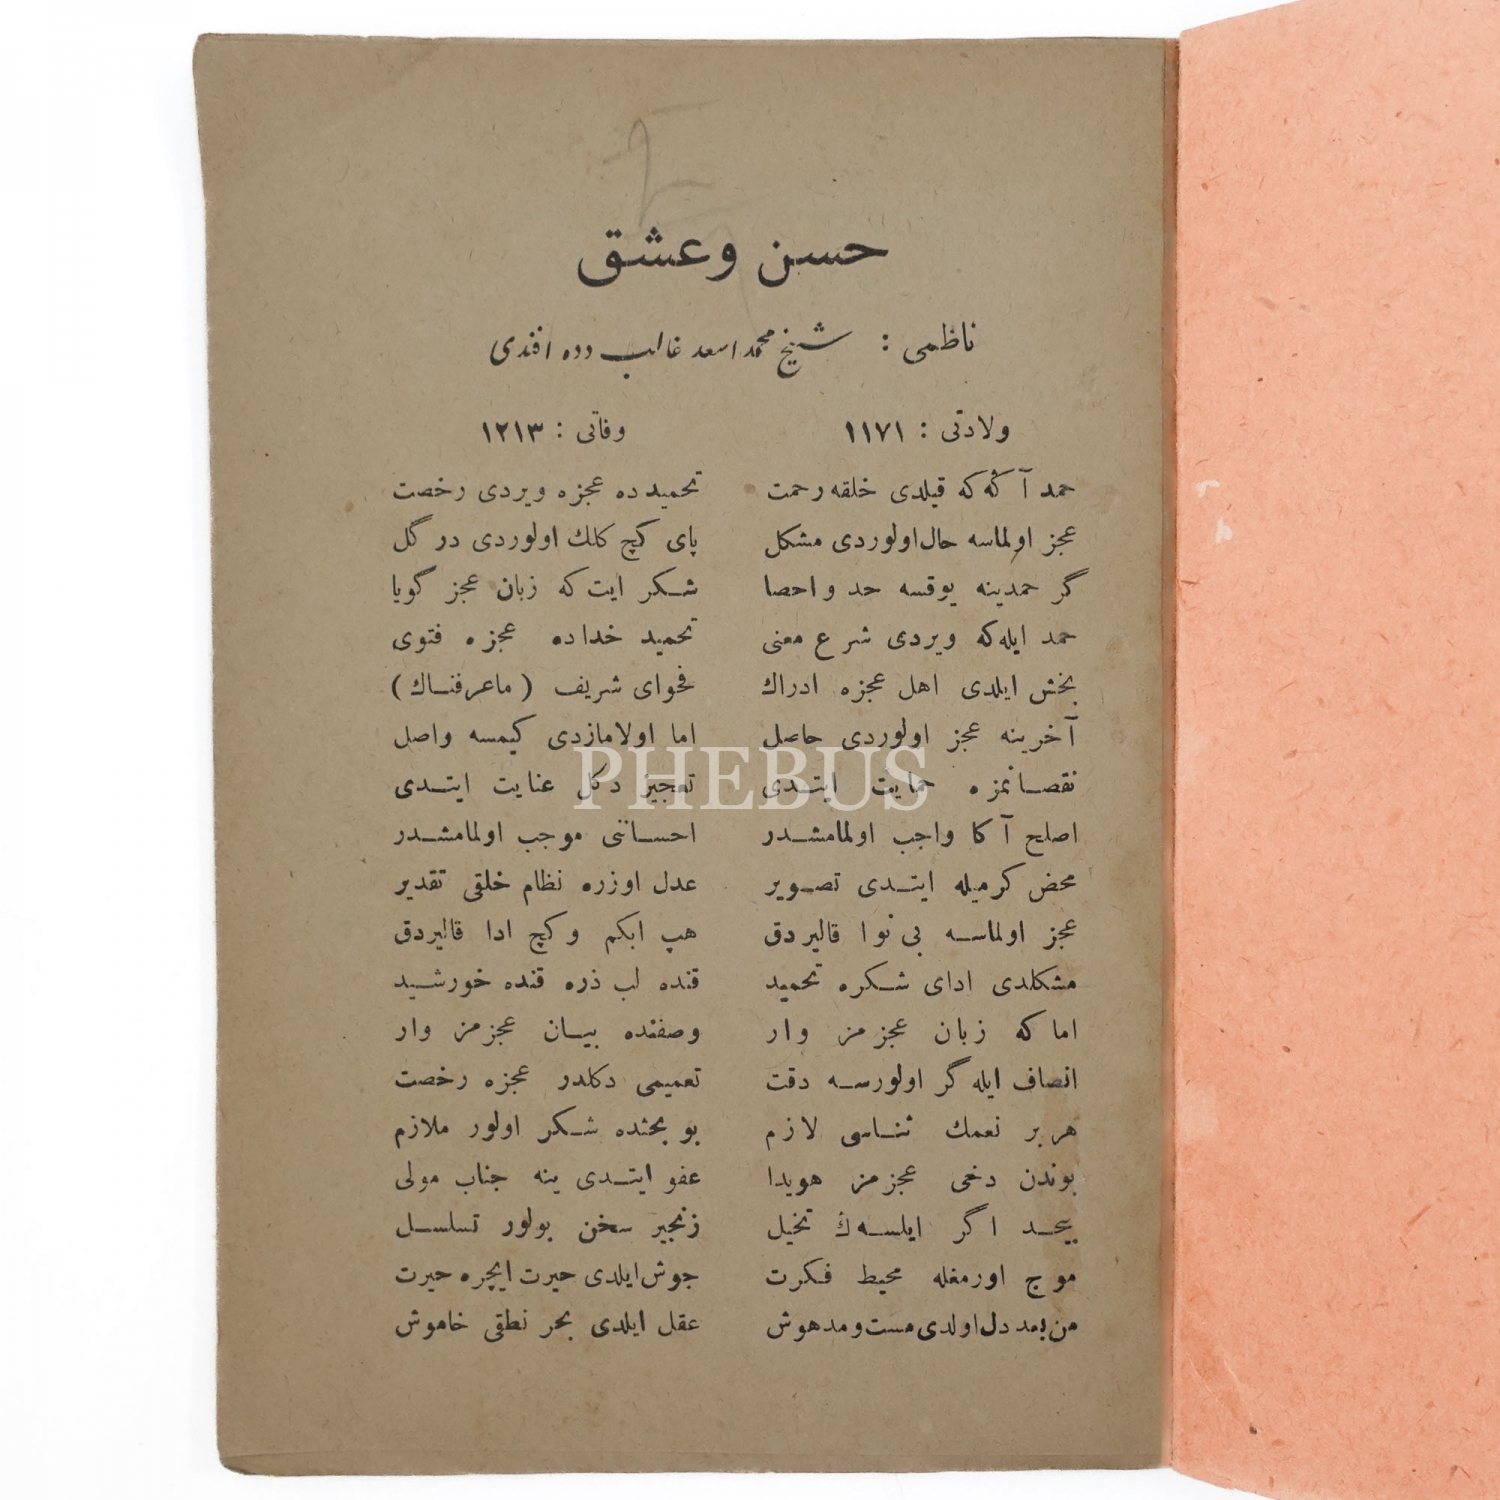 حسن وعشق
ناظمی : شیخ محمد اسعد غالب دده افندی
ولادتی : ۱۱۷۱ وفاتی : ۱۲۱۳
حمد آ ڭه که قیلدی خلقه رحمت تحمیدده عجزه ویردی رخصت
عجز اولماسه حال اولوردی مشکل پای کچ کلك اولوردی در گل
گر حمدینه یوقسه حد و احصا شکر ایت که زبان عجز گویا
حمد ایله که ویردی شرع معنی تحمید خداده عجزه فتوی
بخش ایلدی اهل عجزه ادراك فحوای شریف ( ماعرفناك )
آخرینه عجز اولوردی حاصل اما اولامازدی کیمسه واصل
نقصانمزه حمایت ایتدی تعجیز دکل عنایت ایتدی
اصلح آ کا واجب اولمامشدر احساننی موجب اولمامشدر
محض کرمیله ایتدی تصویر عدل اوزره نظام خلقی تقدیر
عجز اولماسه بی نوا قالیردق هپ ابکم و کچ ادا قالیردق
مشکلدی ادای شکره تحمید قنده لب ذره قنده خورشید
اما که زبان عجزمز وار وصفنده بیان عجزمز وار
انصاف ایله گر اولورسه دقت تعمیمی دکلدر عجزه رخصت
هر بر نعمك ثناسی لازم بو بحثده شکر اولور ملازم
بوندن دخی عجزمز هویدا عفو ایتدی ینه جناب مولی
بیحد اگر ایلسه ڭ تخیل زنجیر سخن بولور تسلسل
موج اورمغله محیط فکرت جوش ایلدی حیرت ایچره حیرت
من بعد دل اولدی مست و مدهوش عقل ایلدی بحر نطقی خاموش
PHEBUS